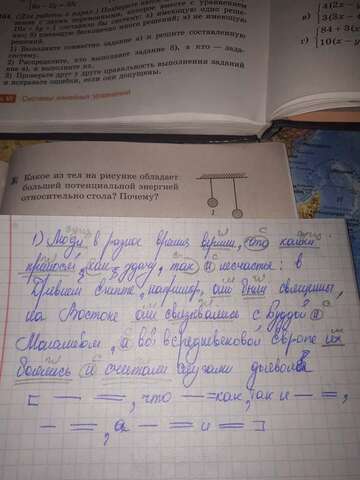 6x − 2y = 80.
(Для работы в парах.) Подберите
нение с двумя переменными, которое вместе с уравнением
10x + 5y = 1 составляло бы систему: а) имеющую одно реше-
ние; б) имеющую бесконечно много решений; в) не имеющую
решений.
1) Выполните совместно задание а) и решите составленную
систему.
2) Распределите, кто выполняет задание б), а кто — зада-
ние в), и выполните их.
3) Проверьте друг у друга правильность выполнения заданий
и исправьте ошибки, если они допущены.
VI Системы линейных уравнений
в) {4(2x −
{3(x −
г) {84 + 3(
{10(x − y
Какое из тел на рисунке обладает
большей потенциальной энергией
относительно стола? Почему?
1
1) Люди в разное время верили, что кошки
приносят, как удачу, так и несчастье: в
Древнем Египте, например, они были священны,
на Востоке они связывались с Буддой и
Магометом, а во всредневековой Европе их
боялись и считали слугами дьявола
[ — =, что — = как, так и — =,
— =, а — = и = ]